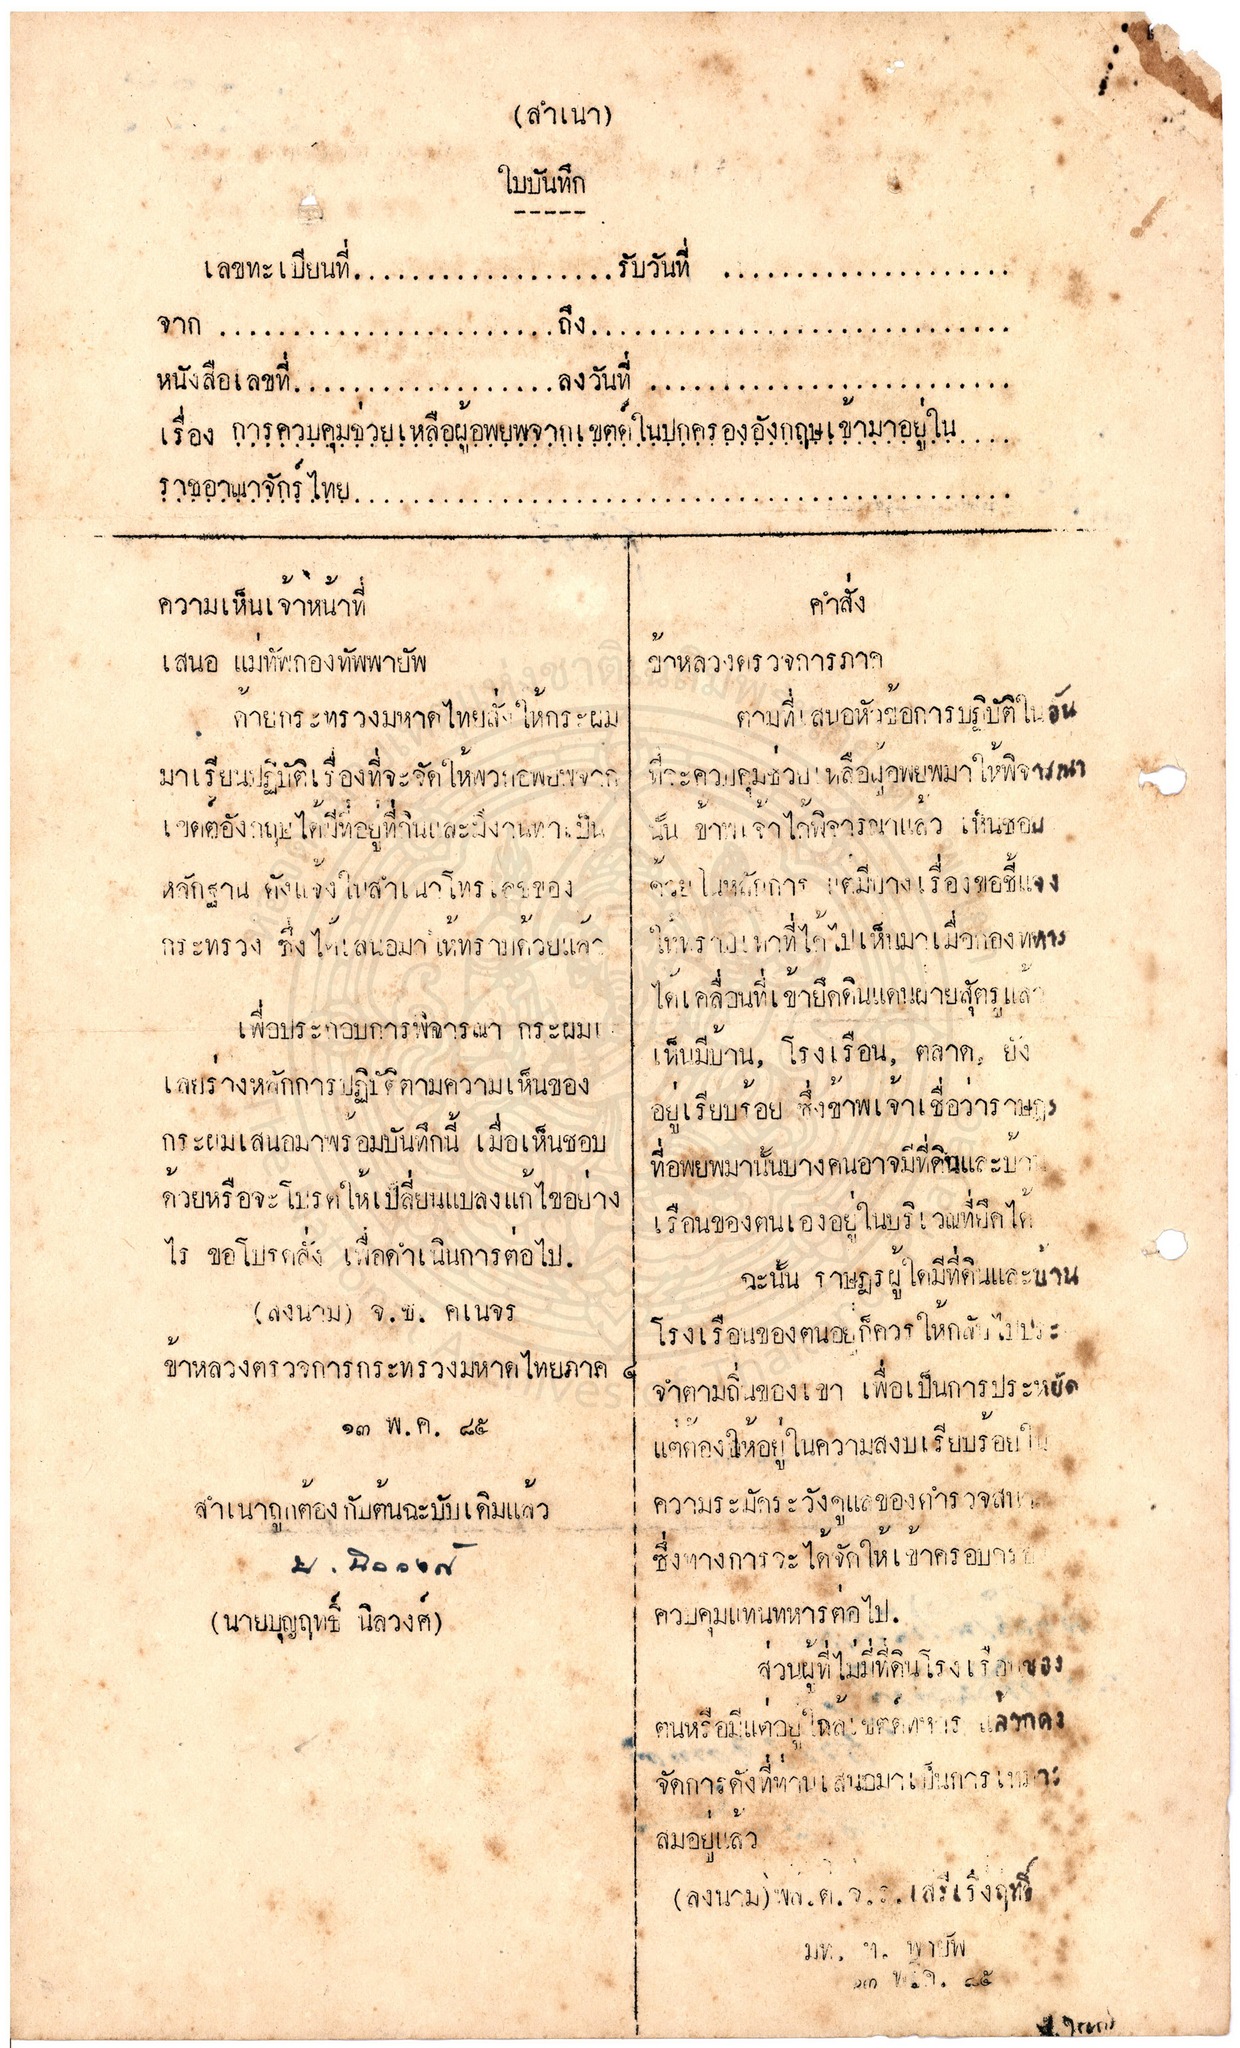 (สำเนา)
ใบบันทึก
-----
เลขทะเบียนที่..................รับวันที่ ....................
จาก .......................ถึง.............................
หนังสือเลขที่..................ลงวันที่ .........................
เรื่อง การควบคุมช่วยเหลือผู้อพยพจากเขตต์ในปกครองอังกฤษเข้ามาอยู่ใน....
ราชอาณาจักร์ไทย..............................................
ความเห็นเจ้าหน้าที่
เสนอ แม่ทัพกองทัพพายัพ
ด้วยกระทรวงมหาดไทยสั่งให้กระผม
มาเรียนปฏิบัติเรื่องที่จะจัดให้พวกอพยพจาก
เขตต์อังกฤษได้มีที่อยู่ที่กินและมีงานทำเป็น
หลักฐาน ดังแจ้งในสำเนาโทรเลขของ
กระทรวง ซึ่งได้เสนอมาให้ทราบด้วยแล้ว
เพื่อประกอบการพิจารณา กระผม
เลยร่างหลักการปฏิบัติตามความเห็นของ
กระผมเสนอมาพร้อมบันทึกนี้ เมื่อเห็นชอบ
ด้วยหรือจะโปรดให้เปลี่ยนแปลงแก้ไขอย่าง
ไร ขอโปรดสั่ง เพื่อดำเนินการต่อไป.
(ลงนาม) จ.ช. คเนจร
ข้าหลวงตรวจการกระทรวงมหาดไทยภาค ๔
๑๓ พ.ค. ๘๕
สำเนาถูกต้องกับต้นฉะบับเดิมแล้ว
(นายบุญฤทธิ์ นิลวงศ์)
คำสั่ง
ข้าหลวงตรวจการภาค
ตามที่เสนอหัวข้อการปฏิบัติในอัน
ที่จะควบคุมช่วยเหลือผู้อพยพมาให้พิจารณา
นั้น ข้าพเจ้าได้พิจารณาแล้ว เห็นชอบ
ด้วยในหลักการ แต่มีบางเรื่องขอชี้แจง
ให้ทราบเท่าที่ได้ไปเห็นมาเมื่อกองทหาร
ได้เคลื่อนที่เข้ายึดดินแดนฝ่ายสัตรูแล้ว
เห็นมีบ้าน, โรงเรือน, ตลาด, ยัง
อยู่เรียบร้อย ซึ่งข้าพเจ้าเชื่อว่าราษฎร
ที่อพยพมานั้นบางคนอาจมีที่ดินและบ้าน
เรือนของตนเองอยู่ในบริเวณที่ยึดได้
ฉะนั้น ราษฎรผู้ใดมีที่ดินและบ้าน
โรงเรือนของตนอยู่ก็ควรให้กลับไปประ
จำตามถิ่นของเขา เพื่อเป็นการประหยัด
แต่ต้องให้อยู่ในความสงบเรียบร้อยใน
ความระมัดระวังดูแลของตำรวจสนาม
ซึ่งทางการจะได้จัดให้เข้าครอบการ
ควบคุมแทนทหารต่อไป.
ส่วนผู้ที่ไม่มีที่ดินโรงเรือนของ
ตนหรือมีแต่อยู่ใกล้เขตต์ทหาร แล้วคง
จัดการดังที่ท่านเสนอมาเป็นการเหมาะ
สมอยู่แล้ว
(ลงนาม)พล.ต.จ.ร.เสรีเริงฤทธิ์
มท. ท. พายัพ
๑๓ พ.ค. ๘๕